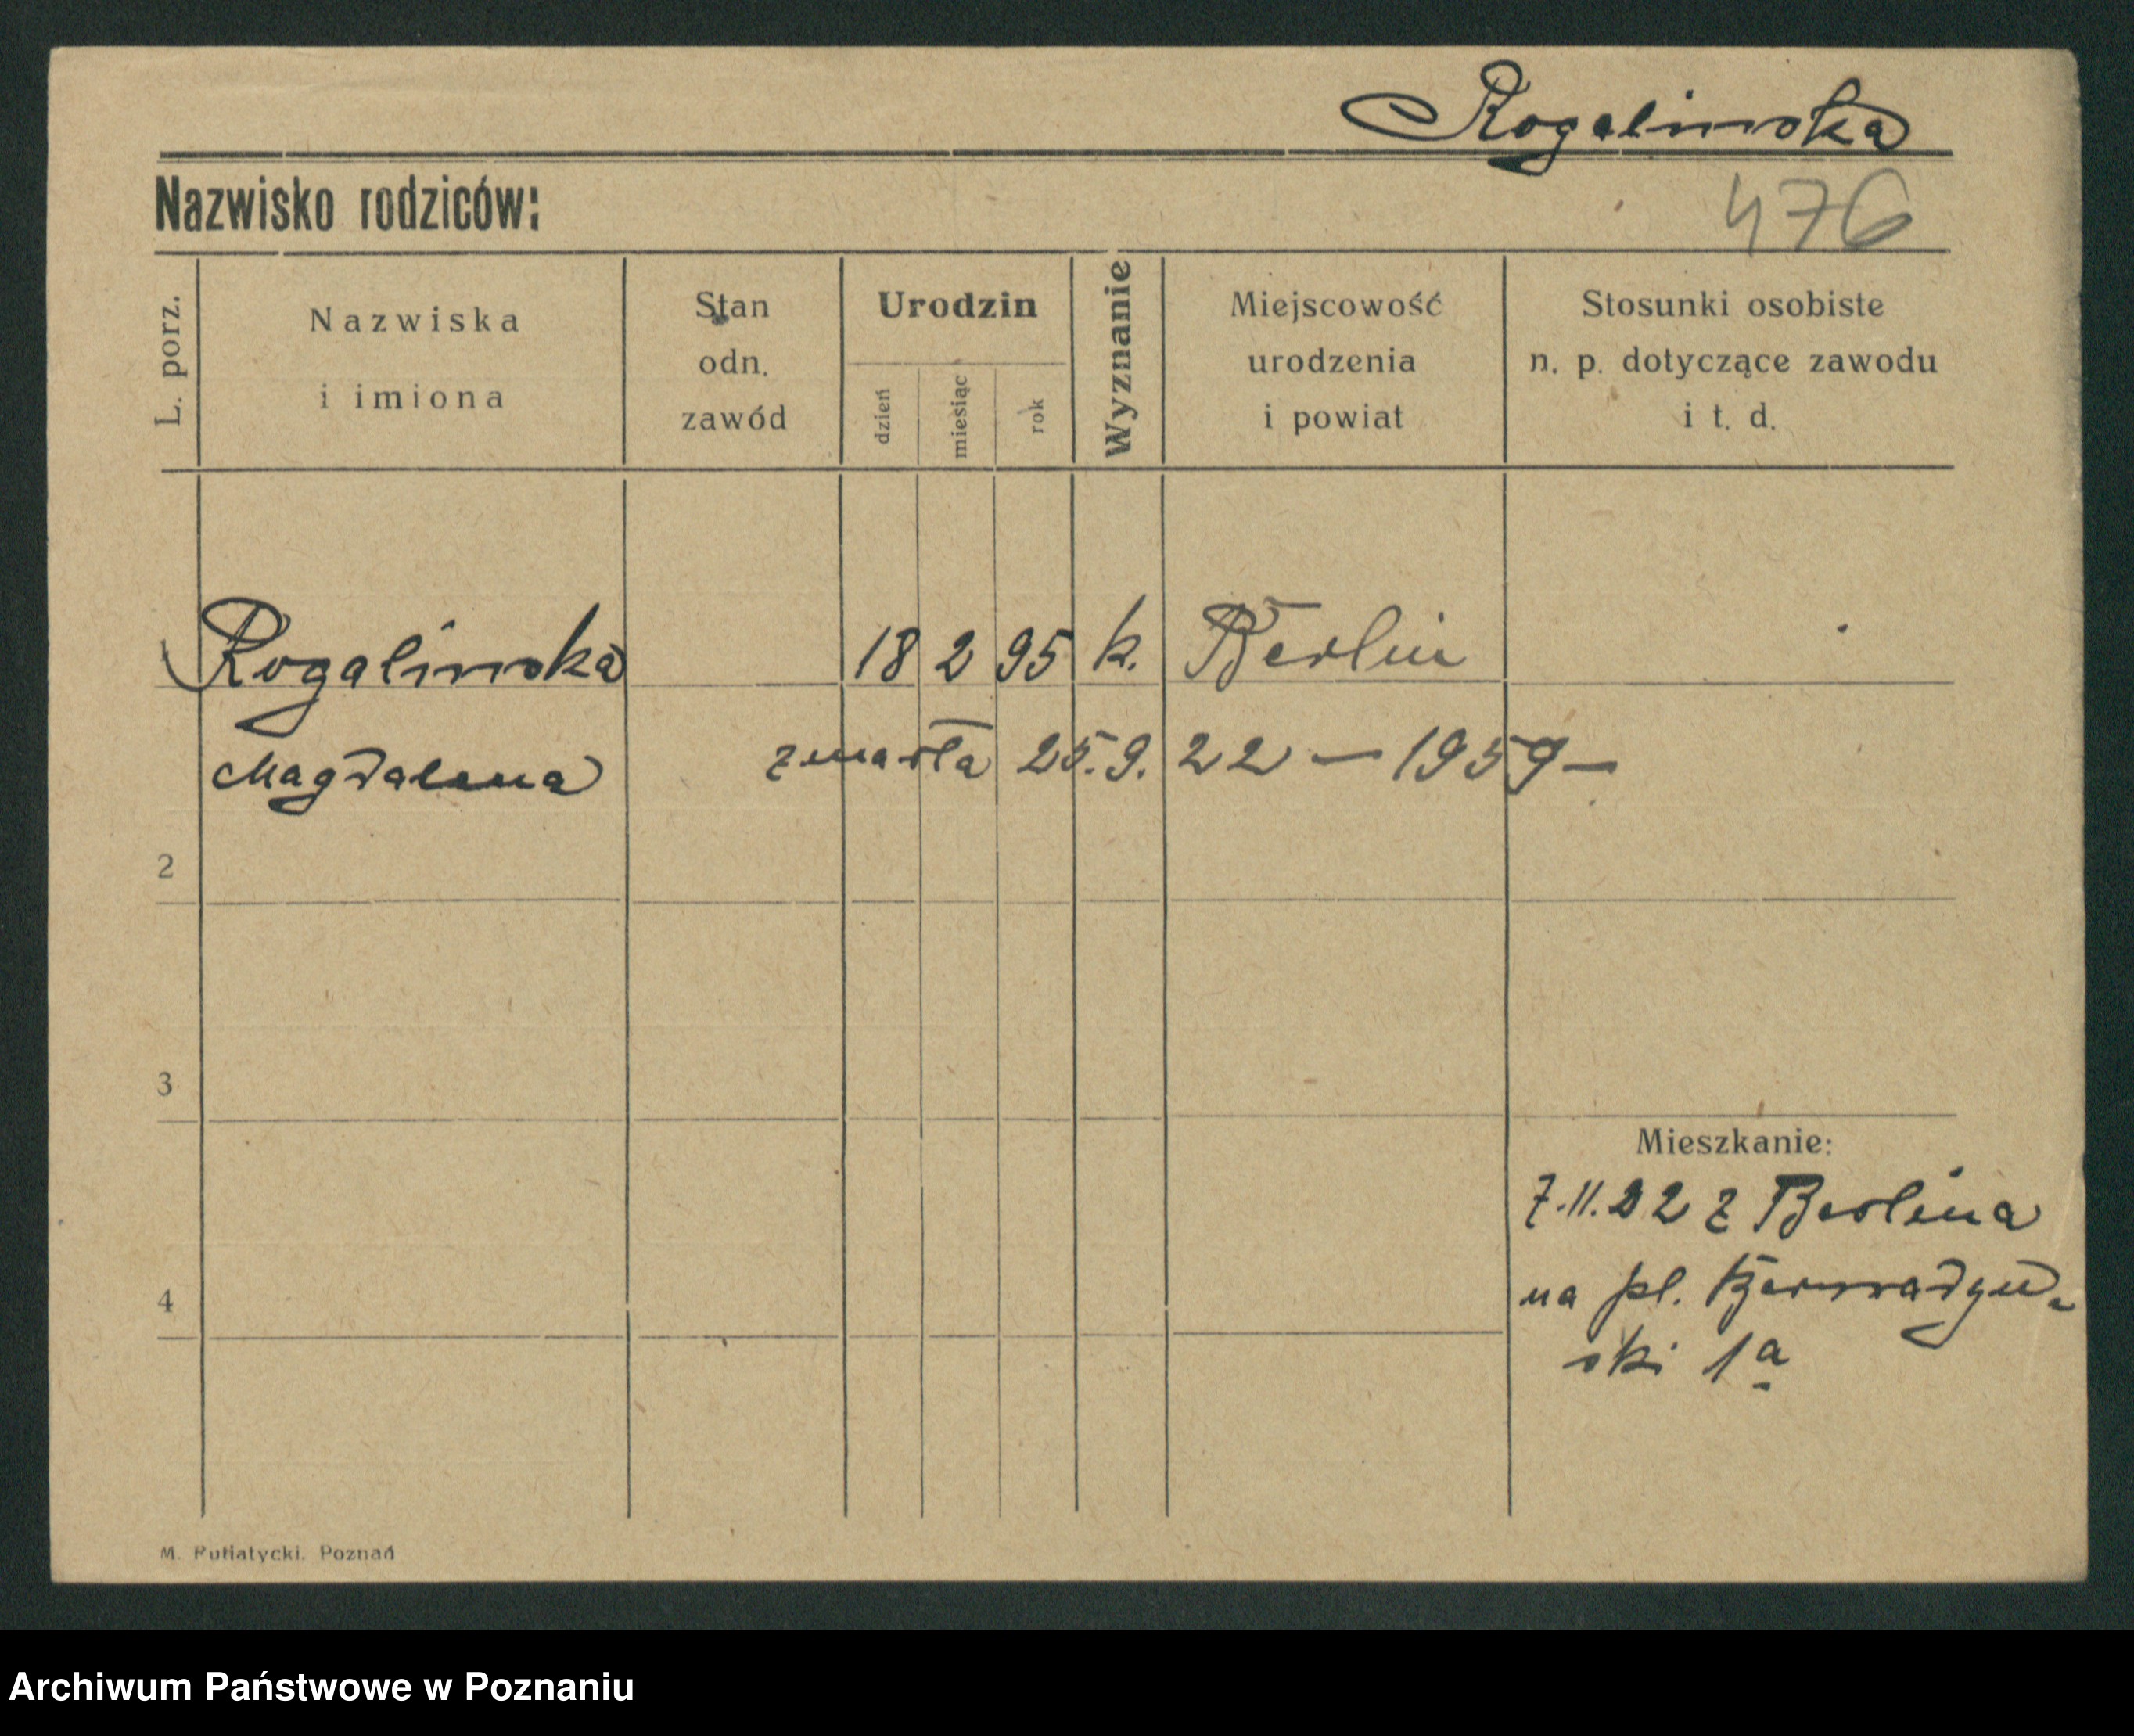 Rogalinska
Nazwisko rodziców:
476
L. porz.
Nazwiska
i imiona
Stan
odn.
zawód
Urodzin
dzień
miesiąc
rok
Wyznanie
Miejscowość
urodzenia
i powiat
Stosunki osobiste
n. p. dotyczące zawodu
i t. d.
Rogalinska 18 2 95 k. Berlin
Magdalena zmarła 25.9.22 – 1959 –
2
3
Mieszkanie:
7.11.22 z Berlina
4
na pl. Bernardyń-
ski 1a
M. Putiatycki. Poznań
Archiwum Państwowe w Poznaniu